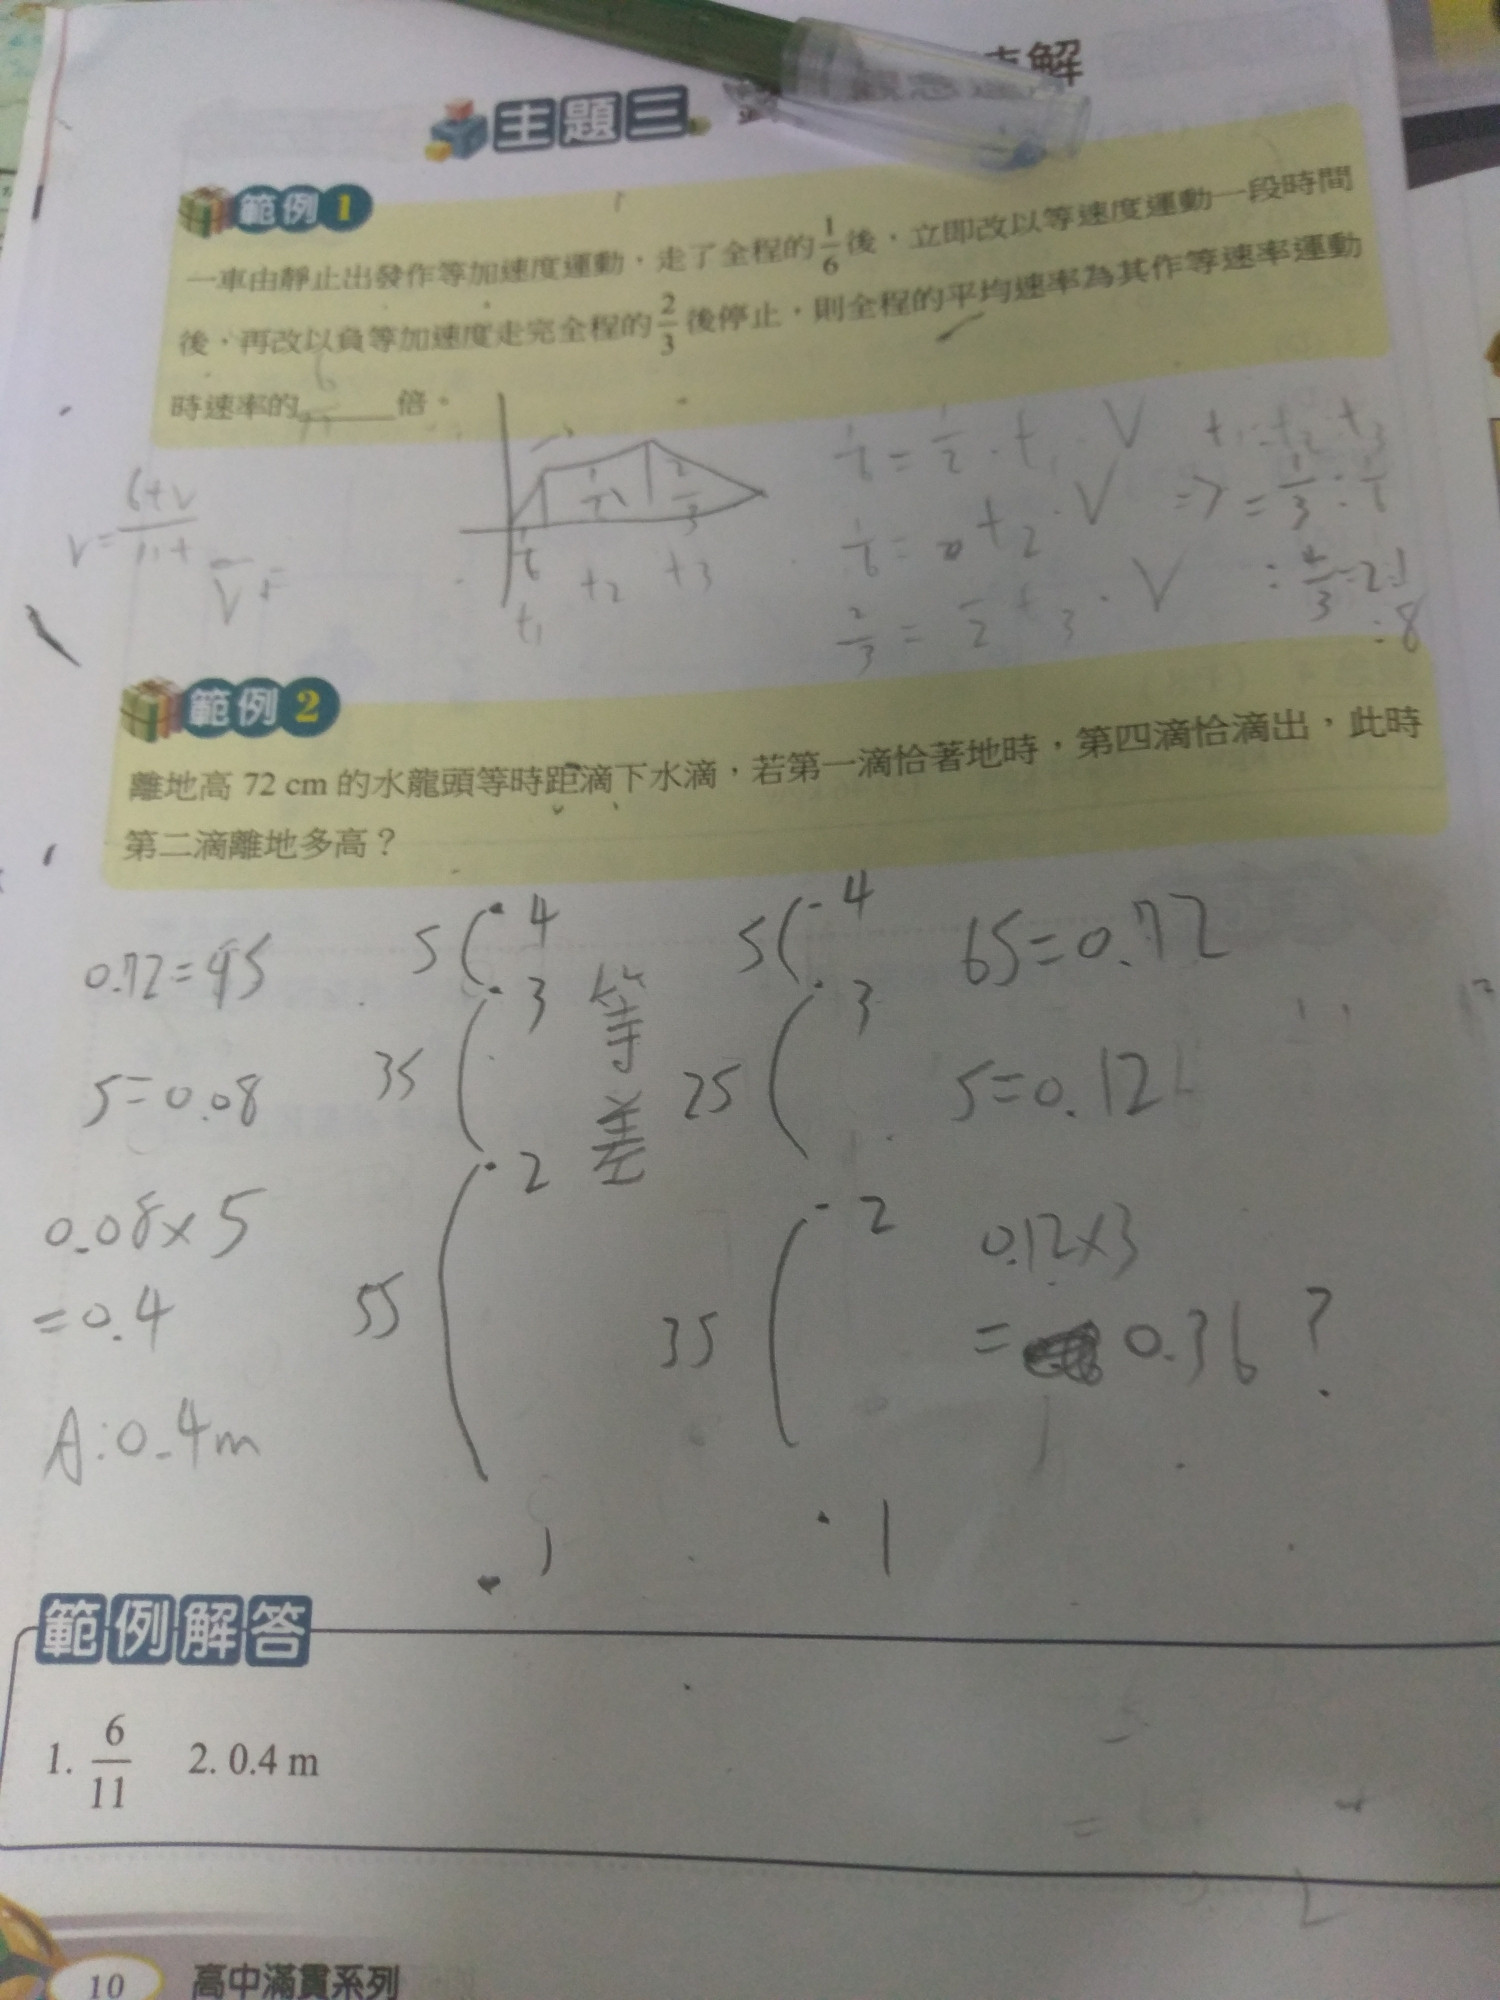 主題三
解
範例 1
一車由靜止出發作等加速度運動，走了全程的 1/6 後，立即改以等速度運動一段時間
後，再改以負等加速度走完全程的 2/3 後停止，則全程的平均速率為其作等速率運動
時速率的____倍。
1/6 = 1/2 · t₁ V
t₁ : t₂ : t₃
t₂ · V
2/3 = 1/2 t₃ · V
: 8
t₁ t₂ t₃
範例 2
離地高 72 cm 的水龍頭等時距滴下水滴，若第一滴恰著地時，第四滴恰滴出，此時
第二滴離地多高？
0.72=9S
S=0.08
0.08×5
=0.4
A:0.4m
S 4
3S 3
5S 2
1
等差
S 4
2S 3
3S 2
1
6S=0.72
S=0.12
0.12×3
= 0.36 ?
範例解答
1. 6/11 2. 0.4 m
10 高中滿貫系列